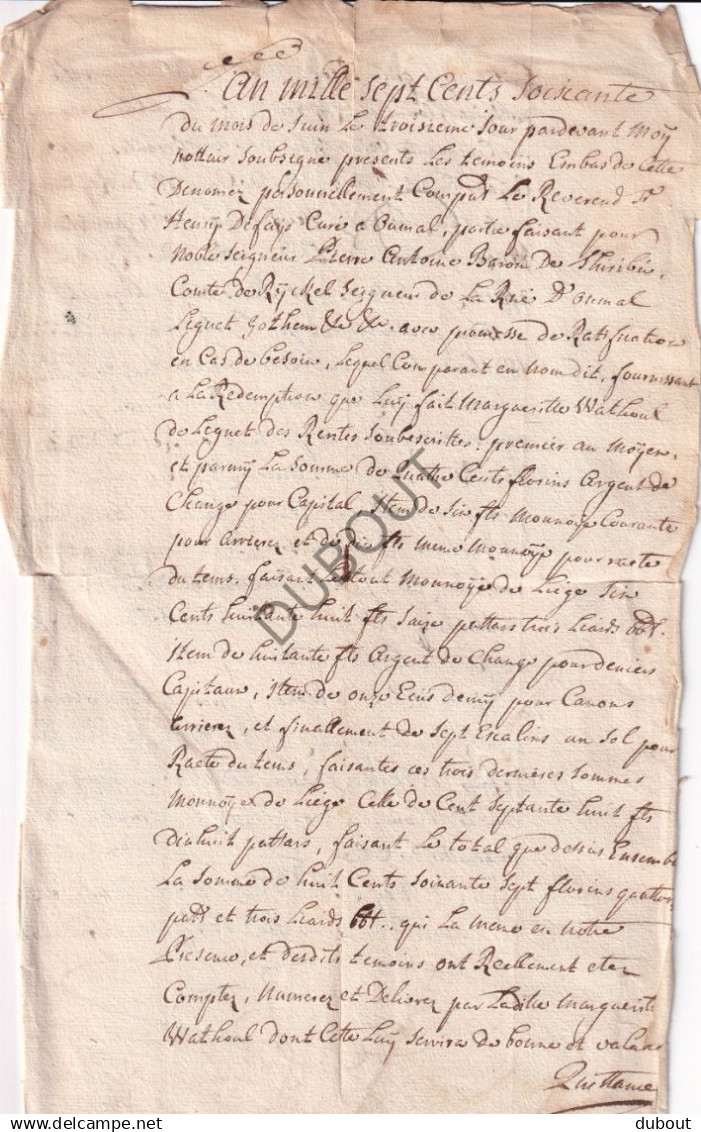 L'an mille sept Cents soixante
du mois de Juin le troisieme Jour pardevant Moÿ
nottair soubsigné presents les temoins Embas de Cette
Denomez personnellement Comput Le Reverend Sr
Henrÿ Defaÿs Curé a Oumal, partie faisant pour
Noble seigneur Pierre Antoine Baron De
Comte de Rÿckel seigneur de La Raÿe D'oumal
Leguet Gothem &c &c. avec promesse de Ratification
en Cas de besoin, Lequel Comparant en nom dit, fournissant
a La Redemption que Luÿ fait Margueritte Wathoul
de Leguet des Rentes soubescrittes: premier au Moÿen,
et parmÿ La somme de Quatre Cents florins Argent de
Change pour Capital, Item de six fls Monnoÿe Courante
pour arrierez et de dix fls meme Monnoÿe pour racte
du tems. faisant le tout Monnoÿe de Liége six
Cents huitante huit fls saize pattars trois liards bbt.
Item de huitante fls Argent de Change pour deniers
Capitaux, Item de onze Ecus demÿ pour Canons
arrierez, et finallement de sept Escalins un sol pour
Racte du tems, faisantes ces trois dernieres sommes
Monnoÿe de Liége Celle de Cent septante huit fls
dixhuit pattars, faisant Le total que dessus Ensemble
La somme de huit Cents soixante sept florins quattorze
patts et trois liards bbt.. qui La meme en notre
Presence, et desdits temoins ont Reellement etez
Comptez, Numerez et Delivrez par Laditte Marguerite
Wathoul dont Cette Luÿ servira de bonne et valable
Quittance
DUBOUT
delcampe.net
dubout